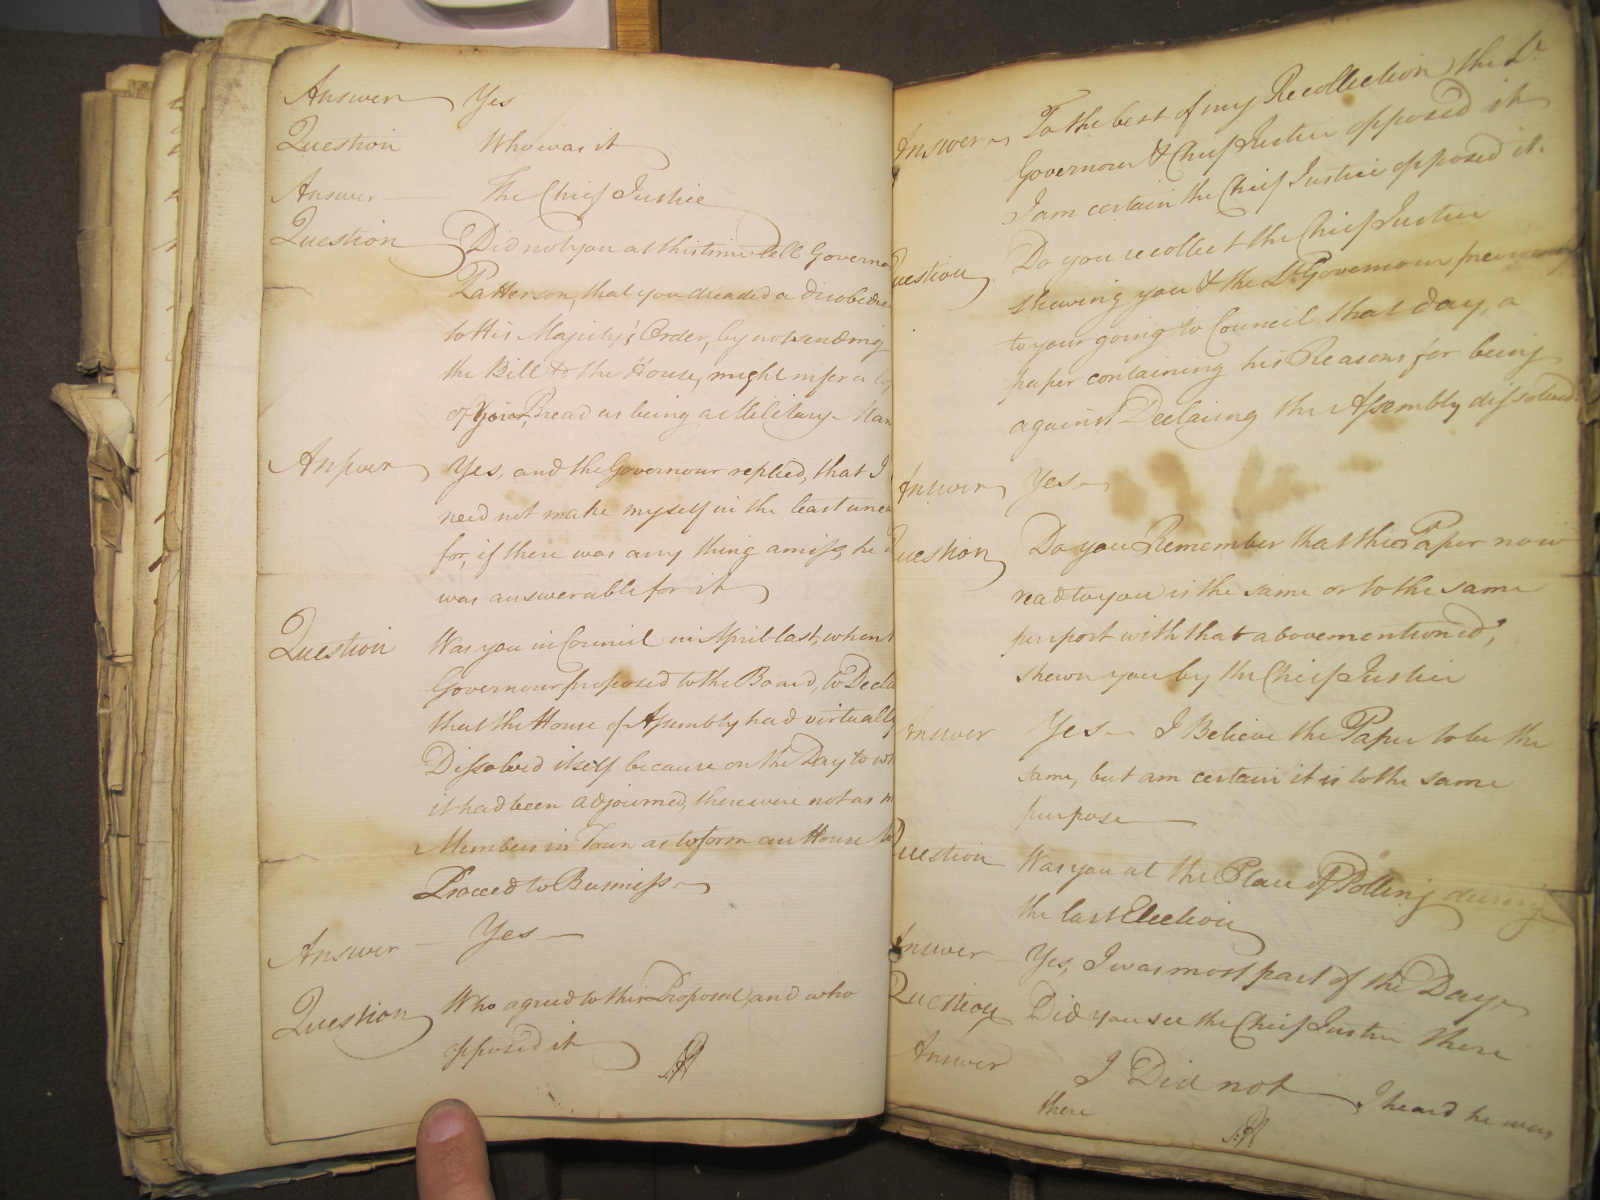 Answer Yes
Question Who was it
Answer The Chief Justice
Question Did not you at this time tell Governo
Patterson, that you dreaded a disobedie
to His Majesty's Order, by not sending
the Bill to the House, might infer a
of Your Bread as being a Military Man
Answer Yes, and the Governour replied, that I
need not make myself in the least unea
for, if there was any thing amiss, he
was answerable for it
Question Was you in Council in April last, when
Governour proposed to the Board, to Decla
that the House of Assembly had virtually
Dissolved itself because on the Day to wh
it had been adjourned, there were not as m
Members in Town as to form an House to
Proceed to Business
Answer Yes
Question Who agreed to this Proposal, and who
opposed it
Answer To the best of my Recollection, the Lt
Governour & Chief Justice opposed it
I am certain the Chief Justice opposed it.
uestion Do you recollect the Chief Justice
shewing you & the Lt Governour previous
to your going to Council that day, a
paper containing his Reasons for being
against Declaring the Assembly dissolved
Answer Yes
uestion Do you Remember that the Paper now
read to you is the same or to the same
purport with that abovementioned,
shewn you by the Chief Justice
Answer Yes I Believe the Paper to be the
same, but am certain it is to the same
purpose
Question Was you at the Place of Polling during
the last Election
Answer Yes, I was most part of the Day
Question Did you see the Chief Justice there
Answer I Did not I heard he was
there